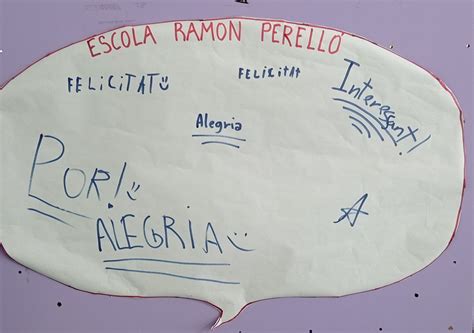 ESCOLA RAMON PERELLÓ
FELICITAT
FELICITAT
Interessant!
Alegria
POR!
ALEGRIA
A